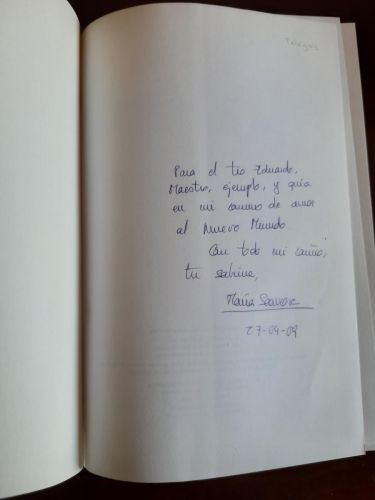 Para el tío Eduardo,
Maestro, ejemplo, y guía
en mi camino de amor
al Nuevo Mundo
Con todo mi cariño,
tu sobrina,
María
27-09-09